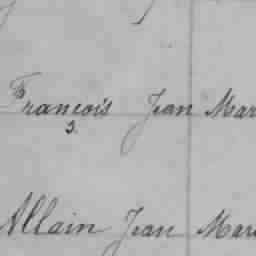 François Jean Mar
3.
Allain Jean Mar